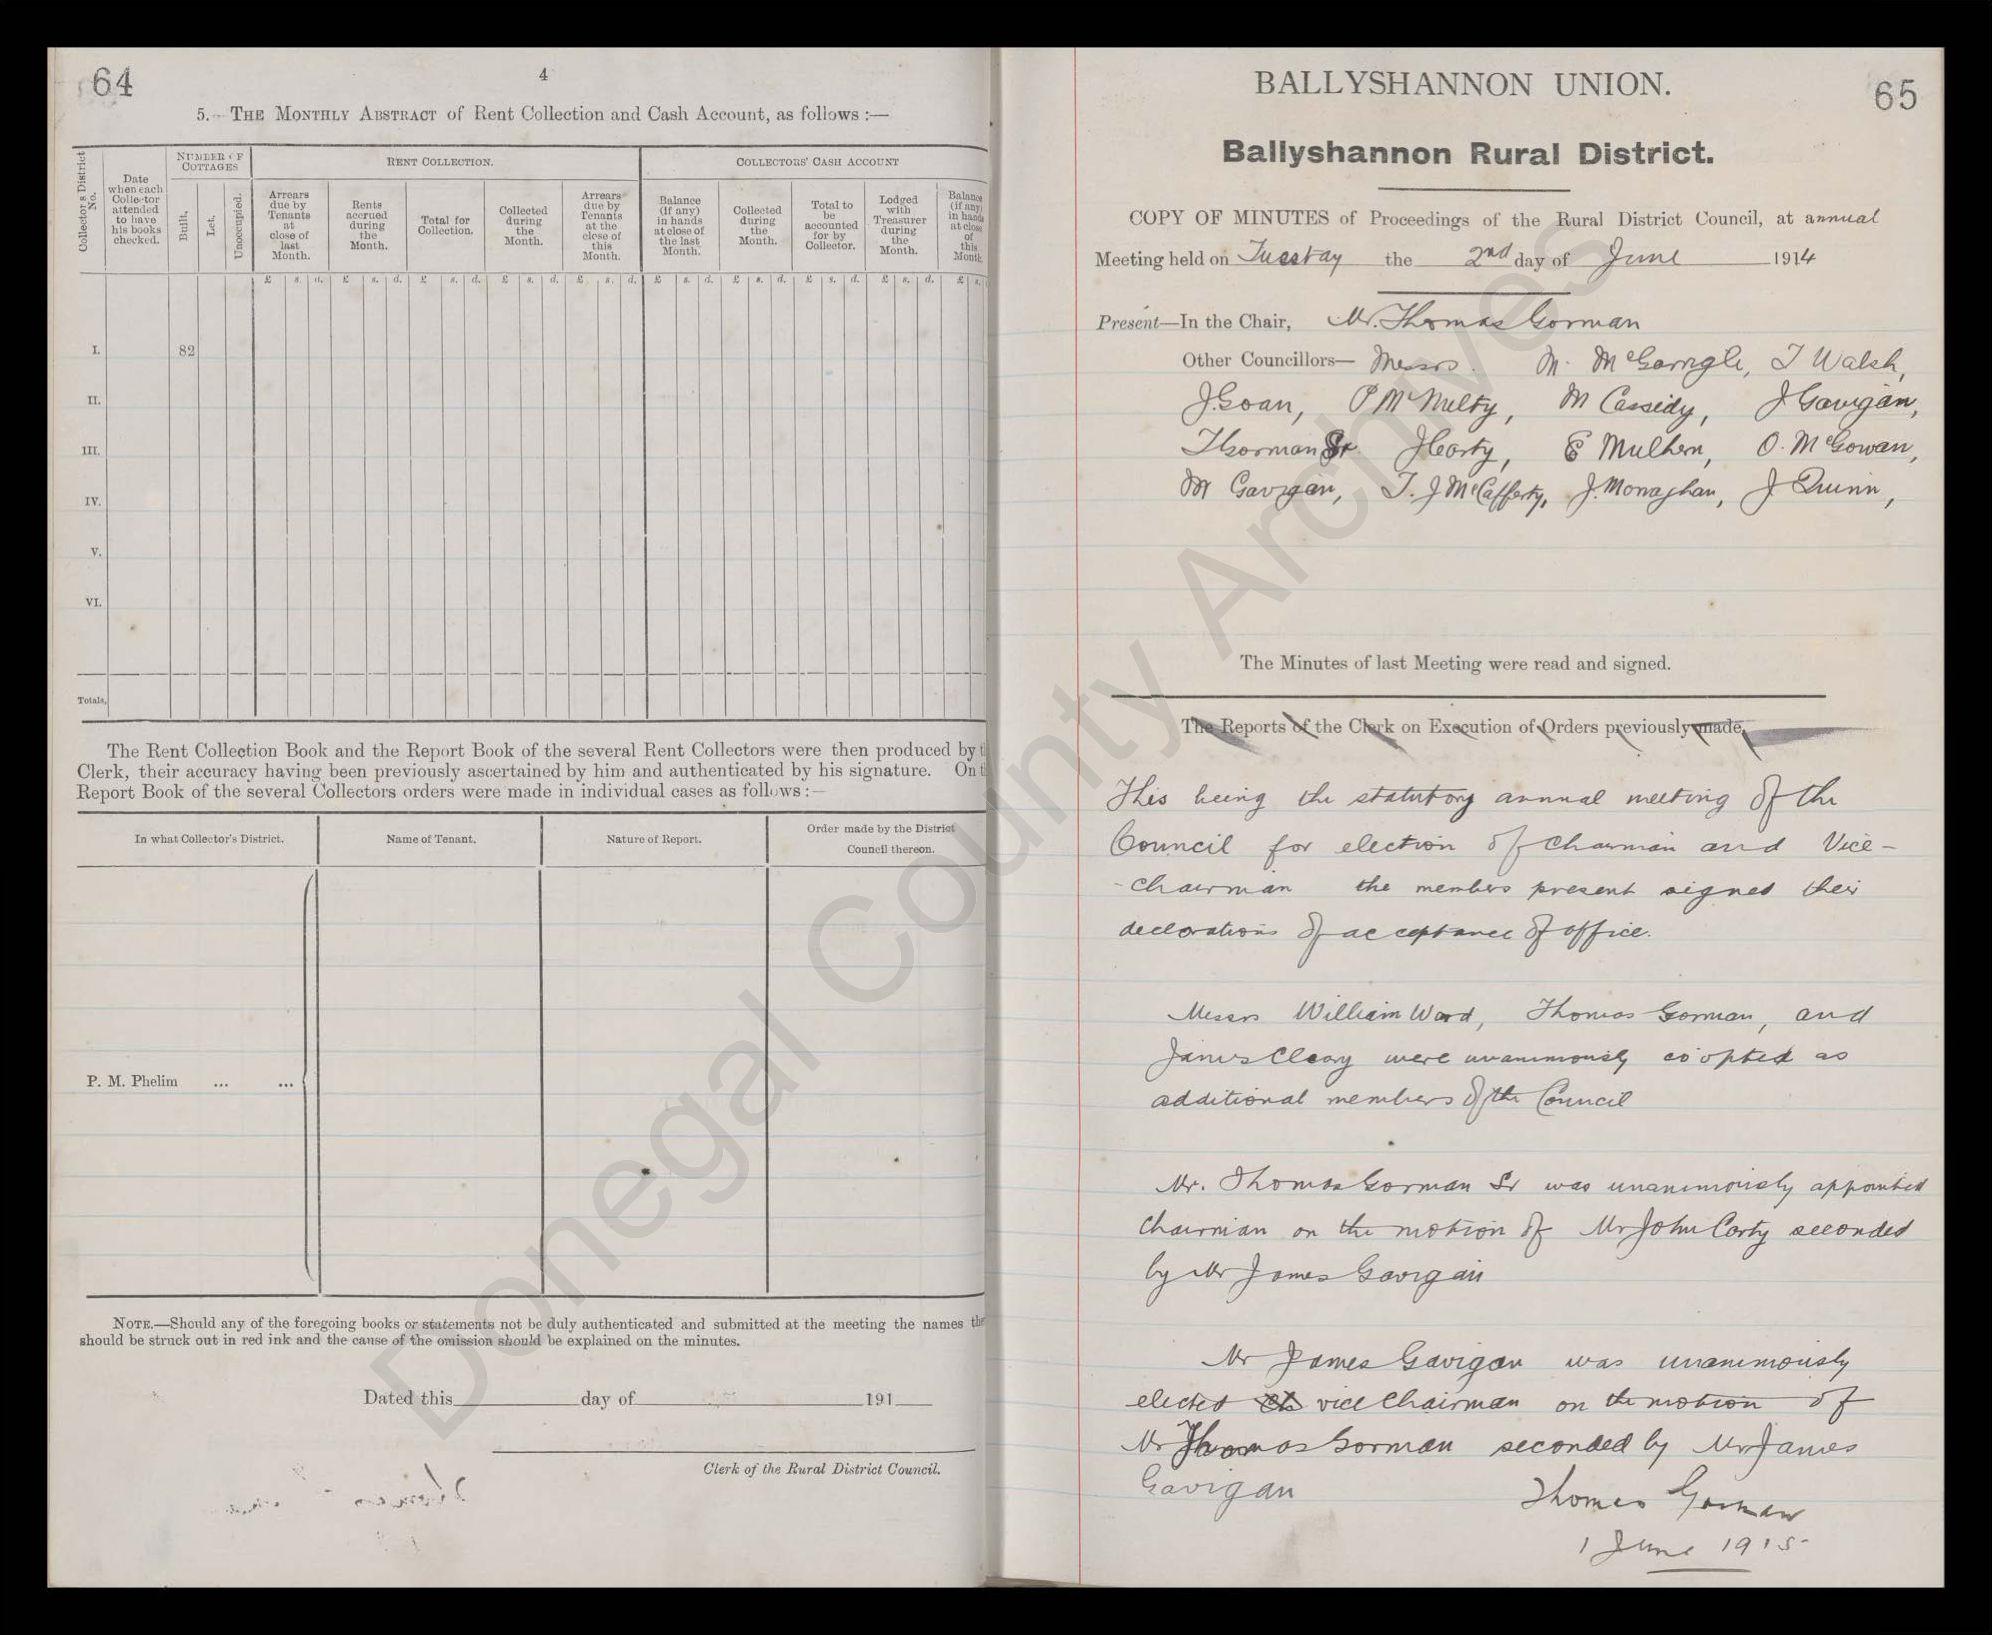 64
4
5. THE MONTHLY ABSTRACT of Rent Collection and Cash Account, as follows :—
Collector's District No.
Date when each Collector attended to have his books checked.
NUMBER OF COTTAGES
Built.
Let.
Unoccupied.
RENT COLLECTION.
Arrears due by Tenants at close of last Month.
Rents accrued during the Month.
Total for Collection.
Collected during the Month.
Arrears due by Tenants at the close of this Month.
COLLECTORS' CASH ACCOUNT
Balance (if any) in hands at close of the last Month.
Collected during the Month.
Total to be accounted for by Collector.
Lodged with Treasurer during the Month.
Balance (if any) in hands at close of this Month
£ s. d. £ s. d. £ s. d. £ s. d. £ s. d. £ s. d. £ s. d. £ s. d. £ s. d. £ s.
I. 82
II.
III.
IV.
V.
VI.
Totals,
The Rent Collection Book and the Report Book of the several Rent Collectors were then produced by t
Clerk, their accuracy having been previously ascertained by him and authenticated by his signature. On t
Report Book of the several Collectors orders were made in individual cases as follows :—
In what Collector's District. Name of Tenant. Nature of Report. Order made by the District Council thereon.
P. M. Phelim ... ...
NOTE.—Should any of the foregoing books or statements not be duly authenticated and submitted at the meeting the names the
should be struck out in red ink and the cause of the omission should be explained on the minutes.
Dated this day of 191
Clerk of the Rural District Council.
BALLYSHANNON UNION.
65
Ballyshannon Rural District.
COPY OF MINUTES of Proceedings of the Rural District Council, at annual
Meeting held on Tuesday the 2nd day of June 1914
Present—In the Chair, Mr. Thomas Gorman
Other Councillors— Messrs. M. McGarrigle, T Walsh,
J. Goan, P McNulty, M Cassidy, J Gavigan,
T Gorman Sr. J Carty, E Mulhern, O. McGowan,
M Gavigan, T. J McCafferty, J. Monaghan, J Quinn,
The Minutes of last Meeting were read and signed.
The Reports of the Clerk on Execution of Orders previously made,
This being the statutory annual meeting of the
Council for election of Chairman and Vice-
-Chairman the members present signed their
declarations of acceptance of office.
Messrs William Ward, Thomas Gorman, and
James Cleary were unanimously co'opted as
additional members of the Council
Mr. Thomas Gorman Sr was unanimously appointed
Chairman on the motion of Mr John Carty seconded
by Mr James Gavigan
Mr James Gavigan was unanimously
elected Ch vice Chairman on the motion of
Mr Thomas Gorman seconded by Mr James
Gavigan
Thomas Gorman
1 June 1915
Donegal County Archives